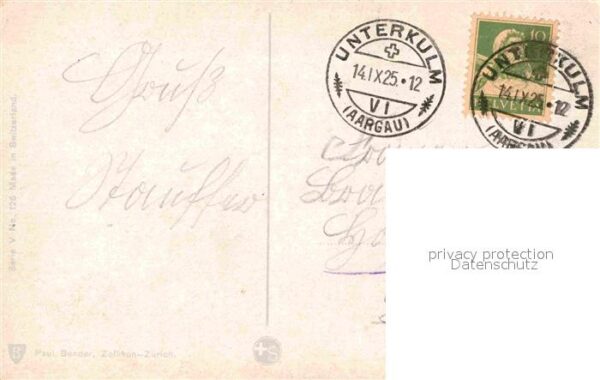 Gruß
Stauffer
UNTERKULM
14.IX.25.-12
VI
(AARGAU)
10
HELVETIA
UNTERKULM
14.IX.25.-12
VI
(AARGAU)
privacy protection
Datenschutz
Serie V. No. 126 Made in Switzerland.
Paul Bender, Zollikon-Zürich.
+S
B